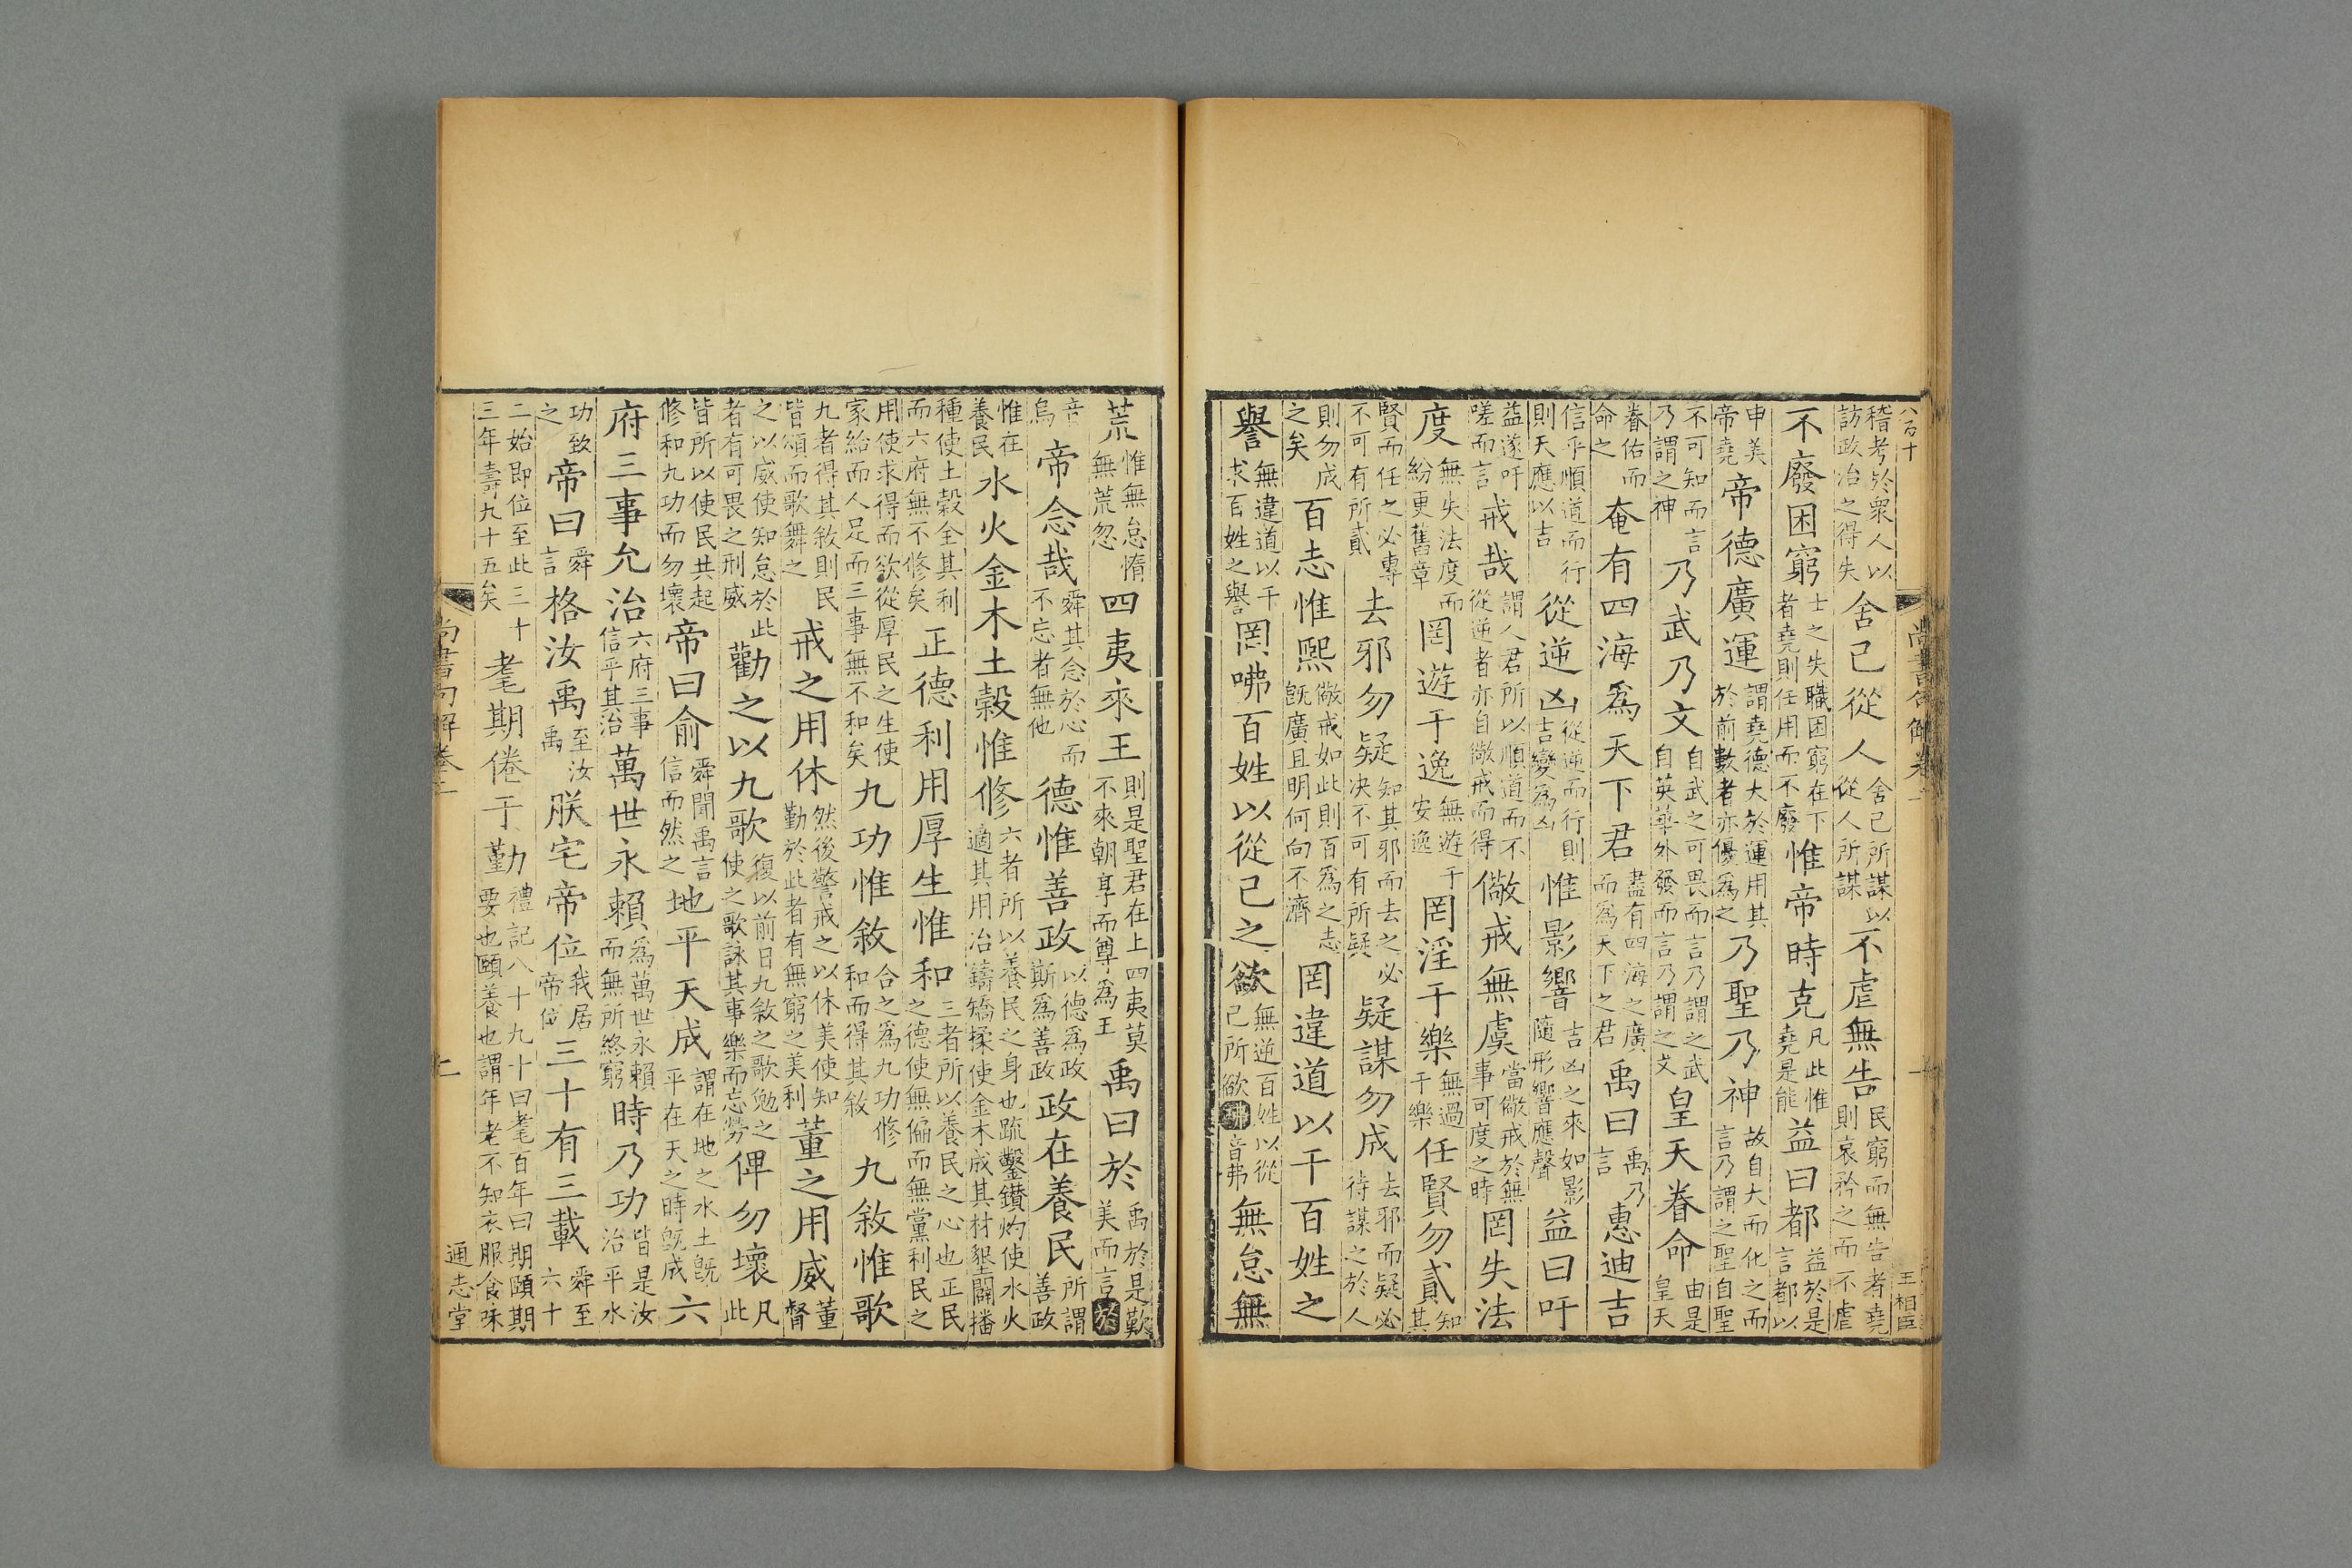 稽考於衆人以訪政治之得失舍己從人舍己所謀以從人所謀不虐無告民窮而無告者堯則哀矜之而不虐
不廢困窮士之失職困窮在下者堯則任用而不廢惟帝時克凡此惟堯是能益曰都益於是言都以
申美帝堯帝德廣運謂堯德大於運用其於前數者亦優爲之乃聖乃神故自大而化之而言乃謂之聖自聖
不可知而言乃謂之神乃武乃文自武之可畏而言乃謂之武自英華外發而言乃謂之文皇天眷命由是皇天
眷佑而命之奄有四海爲天下君盡有四海之廣而爲天下之君禹曰禹乃言惠迪吉
信乎順道而行則天應以吉從逆凶從逆而行則吉變爲凶惟影響吉凶之來如影隨形響應聲益曰吁
益遂吁嗟而言戒哉謂人君所以順道而不從逆者亦自儆戒而得儆戒無虞當儆戒於無事可度之時罔失法
度無失法度而紛更舊章罔遊于逸無遊于安逸罔淫于樂無過于樂任賢勿貳知其
賢而任之必專不可有所貳去邪勿疑知其邪而去之必决不可有所疑疑謀勿成去邪而疑必待謀之於人
則勿成之矣百志惟熙儆戒如此則百爲之志旣廣且明何向不濟罔違道以干百姓之
譽無違道以干求百姓之譽罔咈百姓以從己之欲無逆百姓以從己所欲咈音弗無怠無
荒惟無怠惰無荒忽四夷來王則是聖君在上四夷莫不來朝享而尊爲王禹曰於禹於是歎美而言於
音烏帝念哉舜其念於心而不忘者無他德惟善政以德爲政斯爲善政政在養民所謂善政
惟在養民水火金木土穀惟修六者所以養民之身也疏鑿鑚灼使水火適其用冶鑄矯揉使金木成其材墾闢播
種使土穀全其利而六府無不修矣正德利用厚生惟和三者所以養民之心也正民之德使無偏而無黨利民之
用使求得而欲從厚民之生使家給而人足而三事無不和矣九功惟敘合之爲九功修和而得其敘九敘惟歌
九者得其敘則民皆頌而歌舞之戒之用休然後警戒之以休美使知勤於此者有無窮之美利董之用威董督
之以威使知怠於此者有可畏之刑威勸之以九歌復以前日九敘之歌勉之使之歌詠其事樂而忘勞俾勿壞凡此
皆所以使民共起修和九功而勿壞帝曰俞舜聞禹言信而然之地平天成謂在地之水土旣平在天之時旣成六
府三事允治六府三事信乎其治萬世永賴爲萬世永賴而無所終窮時乃功皆是汝治平水
功致之帝曰舜言格汝禹至汝禹朕宅帝位我居帝位三十有三載舜至六十
二始即位至此三十三年壽九十五矣耄期倦于勤禮記八十九十曰耄百年曰期頤期要也頤養也謂年老不知衣服食味
通志堂